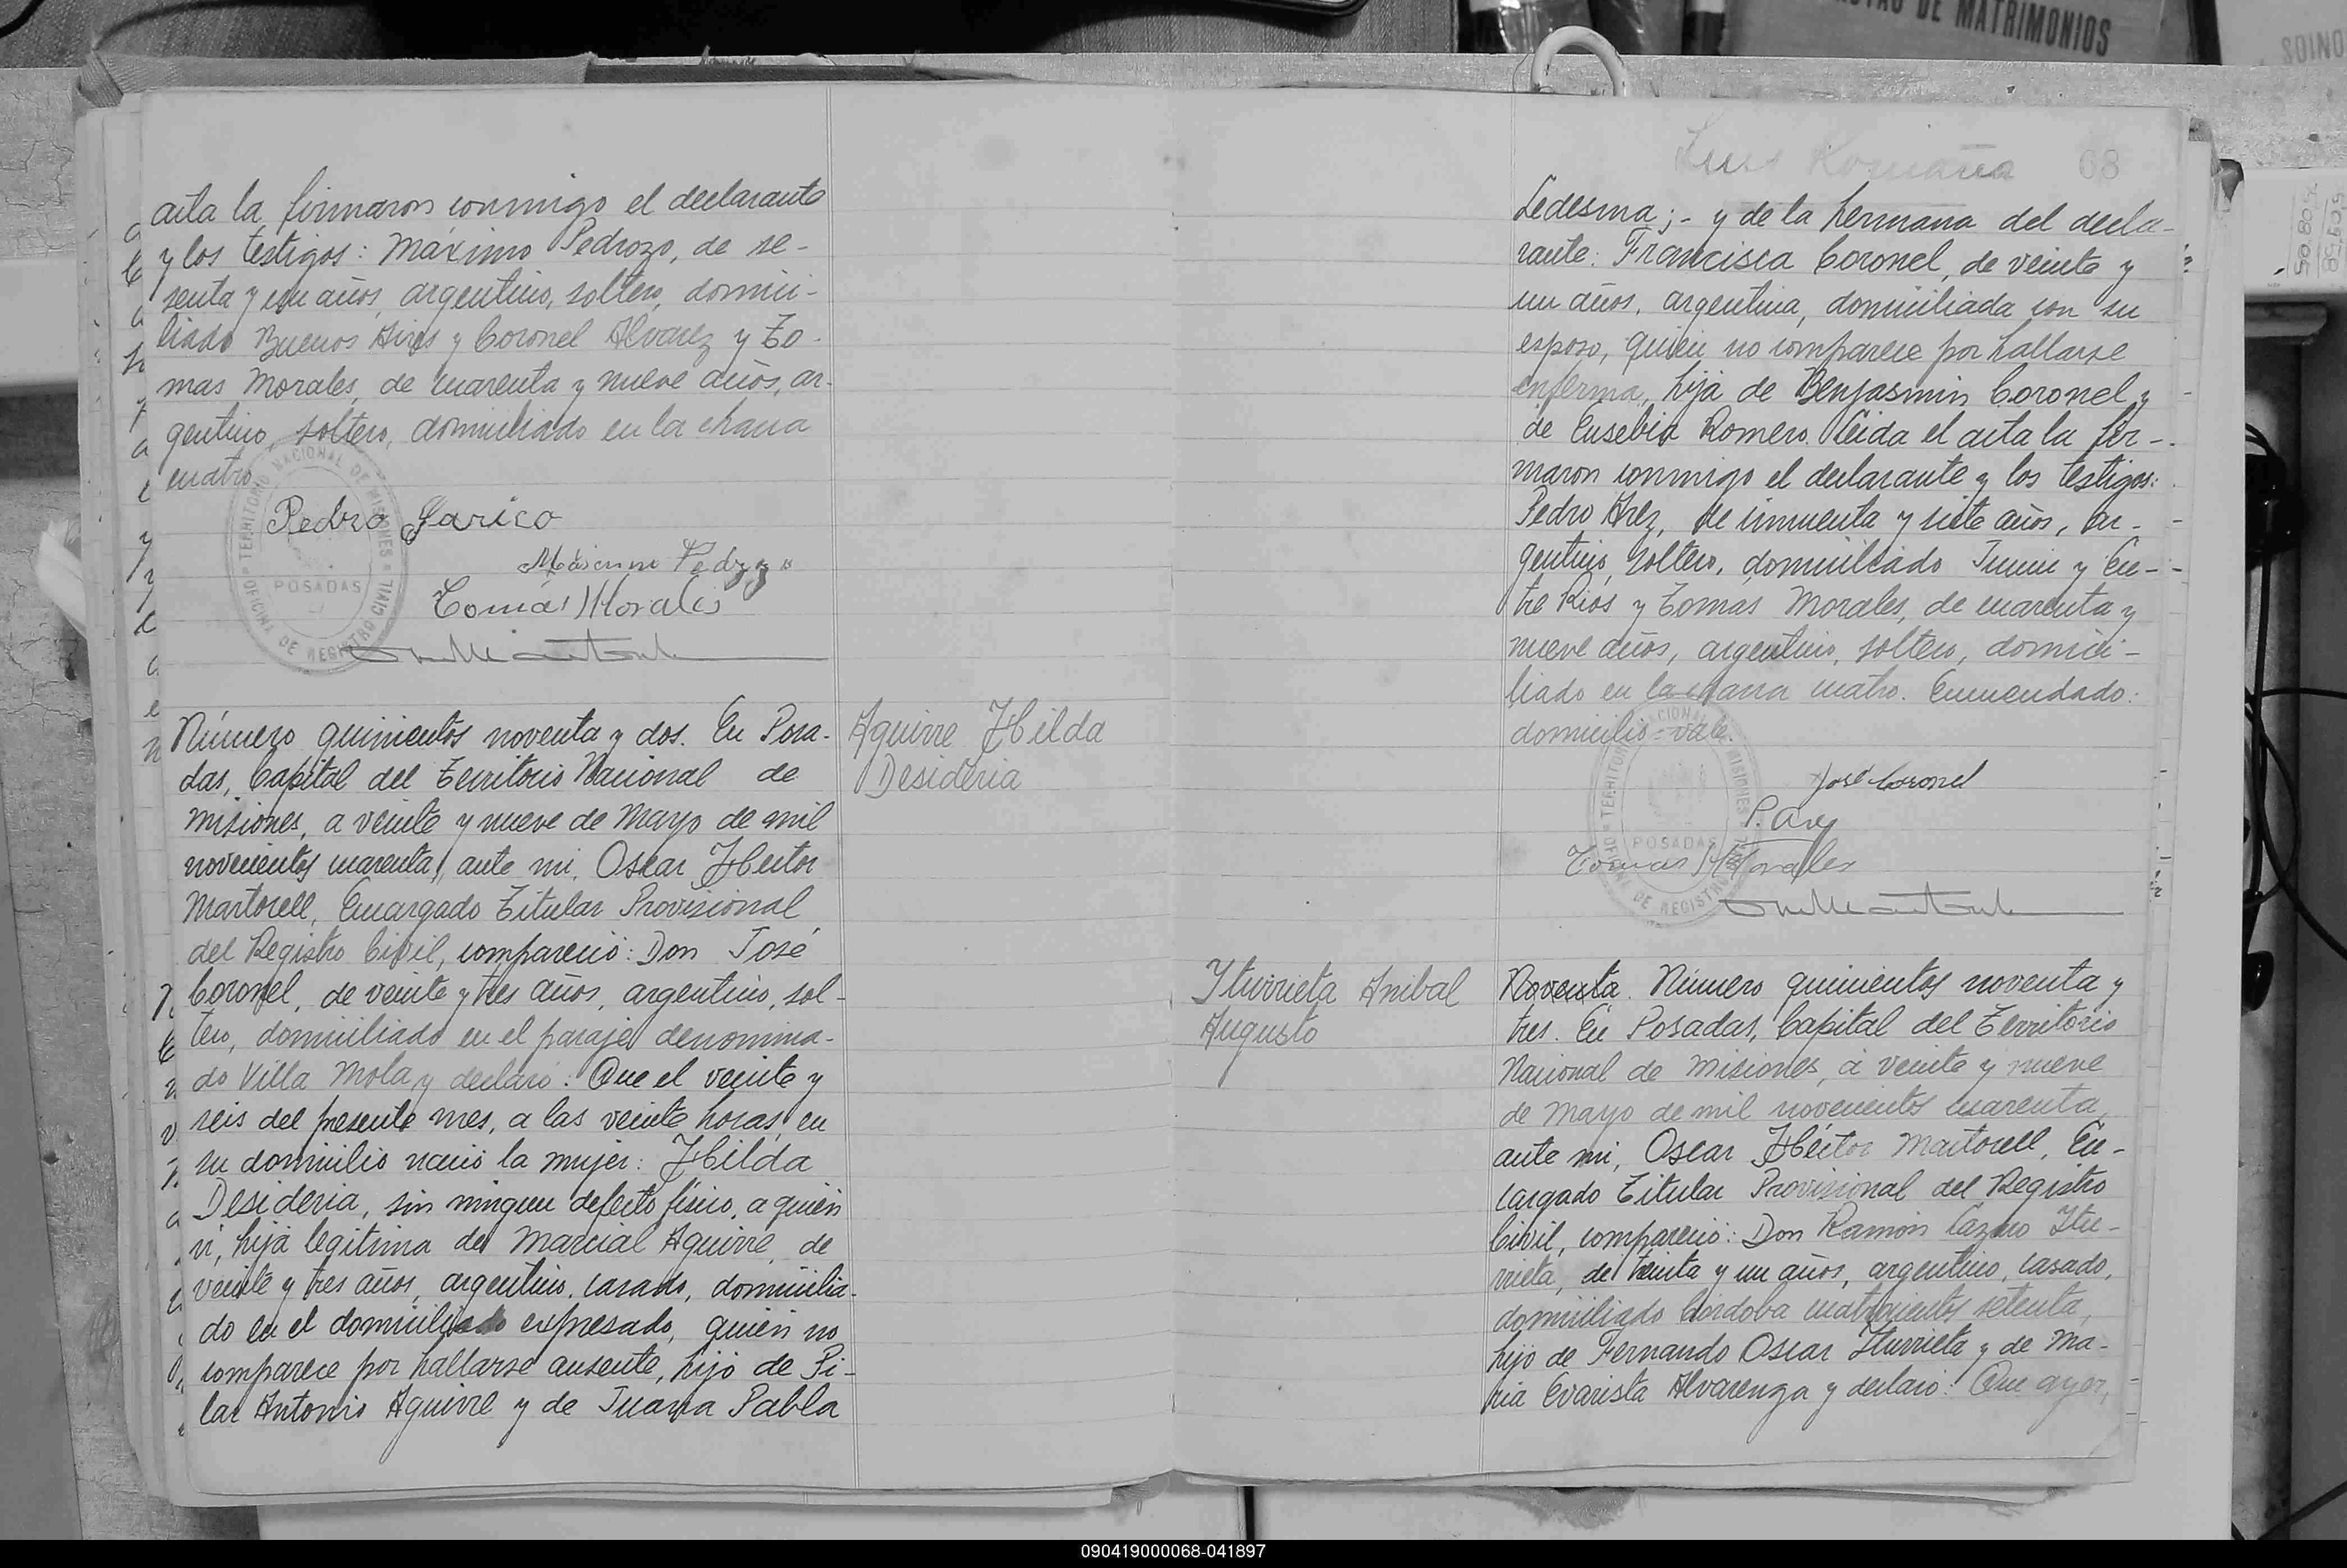 acta la firmaron conmigo el declarante
y los testigos: Máximo Pedrozo, de se-
senta y un años, argentino, soltero, domici-
liado Buenos Aires y Coronel Alvarez y To-
mas Morales, de cuarenta y nueve años, ar-
gentino, soltero, domiciliado en la chacra
cuatro.
TERRITORIO NACIONAL DE MISIONES
POSADAS
OFICINA DE REGISTRO CIVIL
Pedro Garico
Máximo Pedrozo
Tomás Morales
Número quinientos noventa y dos. En Posa-
das, Capital del Territorio Nacional de
Misiones, a veinte y nueve de Mayo de mil
novecientos cuarenta, ante mi, Oscar Héctor
Martorell, Encargado Titular Provisional
del Registro Civil, compareció: Don José
Coronel, de veinte y tres años, argentino, sol-
tero, domiciliado en el paraje denomina-
do Villa Mola y declaró: Que el veinte y
seis del presente mes, a las veinte horas, en
su domicilio nació la mujer: Hilda
Desideria, sin ningun defecto físico, a quien
vi, hija legitima de Marcial Aguirre, de
veinte y tres años, argentino, casado, domicilia-
do en el domicilio expresado, quien no
comparece por hallarse ausente, hijo de Pi-
lar Antonio Aguirre y de Juana Pabla
Aguirre Hilda
Desideria
Luis Romaña 68
Ledesma;- y de la hermana del decla-
rante: Francisca Coronel, de veinte y
un años, argentina, domiciliada con su
esposo, quien no comparece por hallarse
enferma, hija de Benjasmin Coronel y
de Eusebia Romero. Leida el acta la fir-
maron conmigo el declarante y los testigos:
Pedro Arez, de cincuenta y siete años, ar-
gentino, soltero, domiciliado Junin y En-
tre Rios y Tomas Morales, de cuarenta y
nueve años, argentino, soltero, domici-
liado en la chacra cuatro. Enmendado:
domicilio=vale.
TERRITORIO NACIONAL DE MISIONES
POSADAS
OFICINA DE REGISTRO
José Coronel
P. Arez
Tomás Morales
Yturrieta Anibal
Augusto
Noventa. Número quinientos noventa y
tres. En Posadas, Capital del Territorio
Nacional de Misiones, a veinte y nueve
de Mayo de mil novecientos cuarenta,
ante mi, Oscar Héctor Martorell, En-
cargado Titular Provisional del Registro
Civil, compareció: Don Ramón Cazno Itu-
rrieta, de treinta y un años, argentino, casado,
domiciliado Cordoba cuatrocientos setenta,
hijo de Fernando Oscar Iturrieta y de Ma-
ria Evarista Alvarenga y declaró: Que ayer,
DE MATRIMONIOS
090419000068-041897